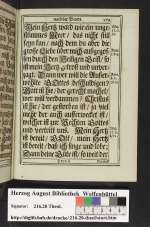 Mein Hertz ward wie ein unge-
stümmes Meer / das nicht still
seyn kan / nach dem du aber die
grosse Liebe über mich außgegoß-
sen durch den Heiligen Geist / so
ist mein Hertz gestillt und unver-
zagt. Dann wer will die Außer-
wehlte GOttes beschuldigen?
GOtt ist hie / der gerecht machet /
wer will verdammen? Christus
ist hie / der gestorben ist / ja viel-
mehr der auch aufferwecket ist /
welcher ist zur Rechten Gottes
und vertritt uns. Mein Hertz
ist bereit / GOtt / mein Hertz
ist bereit / daß ich singe und lobe.
Dann deine Güte ist / so weit der
Herzog August Bibliothek Wolfenbüttel
Signatur: 216.20 Theol.
http://diglib.hab.de/drucke/216-20-theol/start.htm